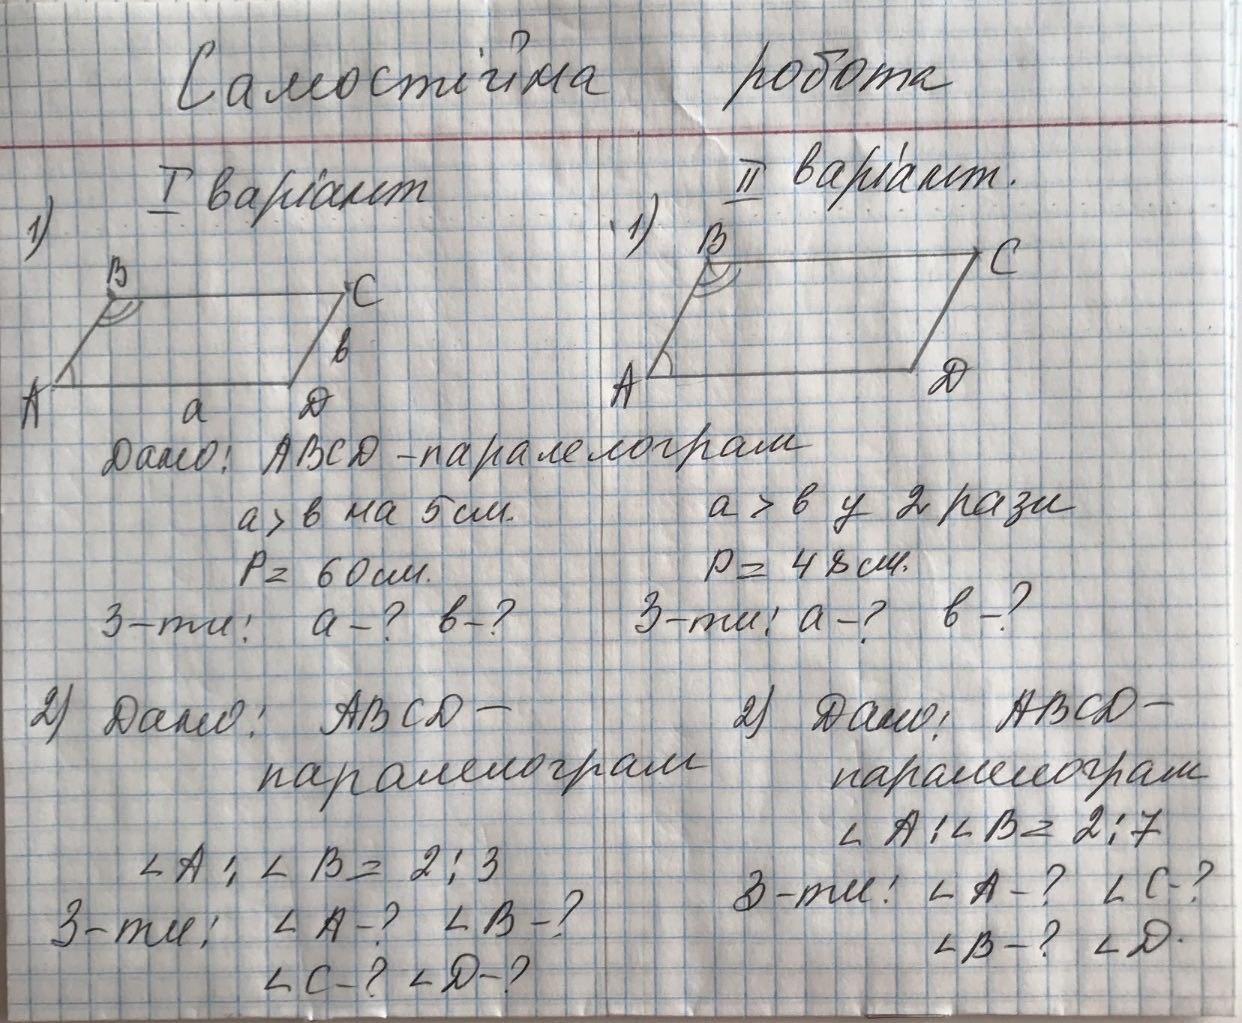 Самостійна робота
I варіант
1)
B
C
в
A
a
D
Дано: ABCD - паралелограм
a > в на 5см.
P = 60см.
З-ти: a - ? в - ?
2) Дано: ABCD -
паралелограм
∠A : ∠B = 2 : 3
З-ти: ∠A - ? ∠B - ?
∠C - ? ∠D - ?
II варіант.
1)
B
C
A
D
a > в у 2 рази
P = 48см.
З-ти: a - ? в - ?
2) Дано: ABCD -
паралелограм
∠A : ∠B = 2 : 7
З-ти: ∠A - ? ∠C - ?
∠B - ? ∠D.